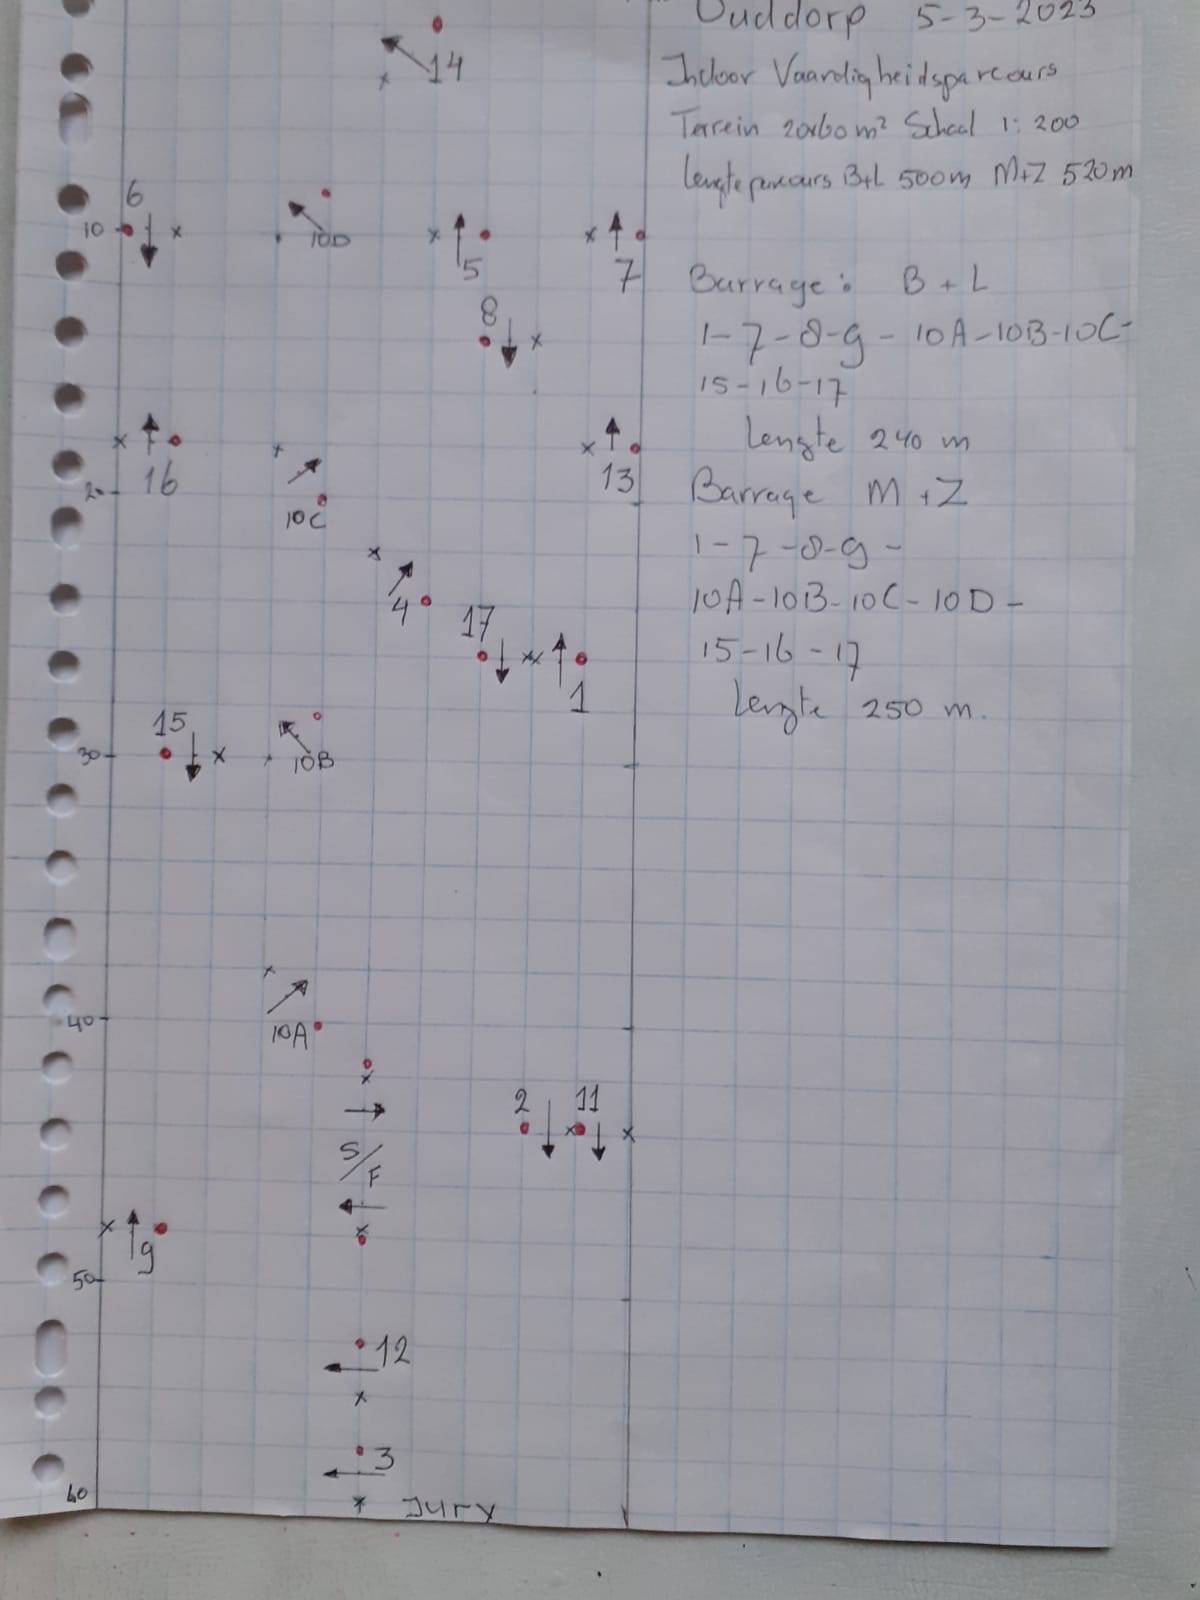 Ouddorp 5-3-2023
Indoor Vaardigheidsparcours
Terrein 20x60 m² Schaal 1:200
Lengte parcours B+L 500m M+Z 520m
14
6
10
10D
5
7
8
Barrage: B + L
1-7-8-9-10A-10B-10C-
15-16-17
Lengte 240 m
16
13
20
10C
Barrage M+Z
1-7-8-9-
10A-10B-10C-10D-
15-16-17
Lengte 250 m.
4
17
1
15
30
10B
40
10A
2
11
S/F
9
50
12
3
60
Jury